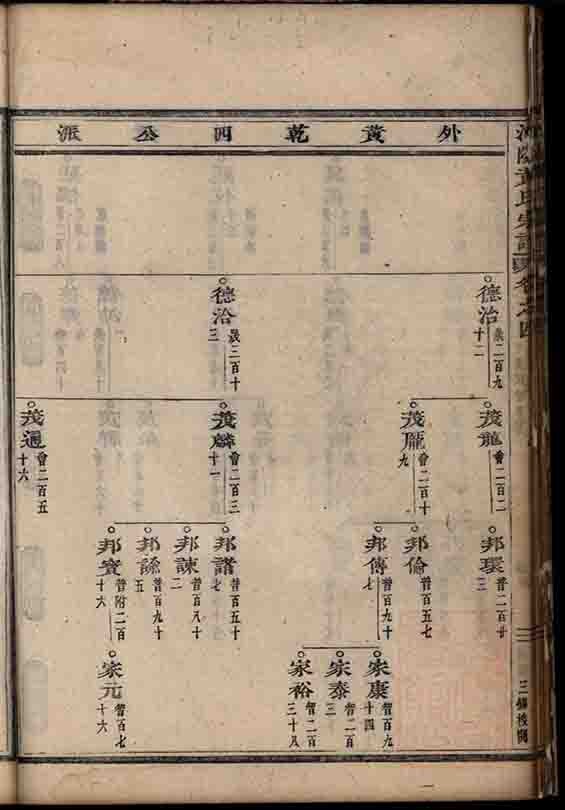 外黃乾四公派
德治
歲二百九十二
德洽
歲三百十三
茂龍
會二百二
茂龐
會二百十九
茂麟
會二百三十一
茂通
會二百五十六
邦環
晉二百廿三
邦倫
晉百五七
邦傳
晉百九十七
邦譜
晉百五十七
邦諫
晉百八十二
邦諭
晉百九十五
邦賓
晉附二百十六
家康
智百九十四
家泰
智二百三
家裕
智二百三十八
家元
智百七十六